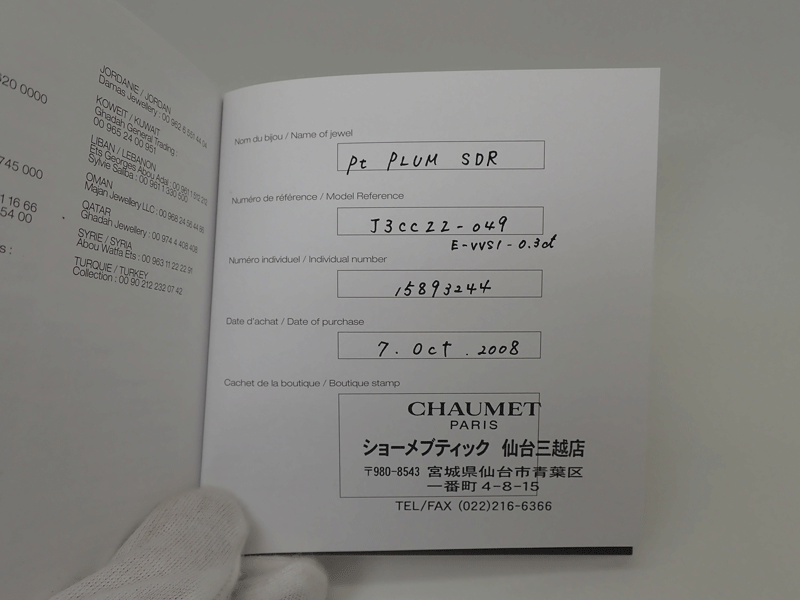 420 0000
745 000
1 16 66
54 00
s :
JORDANIE / JORDAN
Damas Jewellery : 00 962 6 551 44 04
KOWEIT / KUWAIT
Ghadah General Trading :
00 965 24 00 951
LIBAN / LEBANON
Ets Georges Abou Adal : 00 961 1 512 212
Sylvie Saliba : 00 961 1 330 500
OMAN
Majan Jewellery LLC : 00 968 24 56 44 86
QATAR
Ghadah Jewellery : 00 974 4 408 408
SYRIE / SYRIA
Abou Watfa Ets : 00 963 11 22 22 91
TURQUIE / TURKEY
Collection : 00 90 212 232 07 42
Nom du bijou / Name of jewel
Pt PLUM SDR
Numéro de référence / Model Reference
J3CC22-049
E-VVS1-0.3ct
Numéro individuel / Individual number
15893244
Date d'achat / Date of purchase
7. Oct. 2008
Cachet de la boutique / Boutique stamp
CHAUMET
PARIS
ショーメブティック 仙台三越店
〒980-8543 宮城県仙台市青葉区
一番町4-8-15
TEL/FAX (022)216-6366